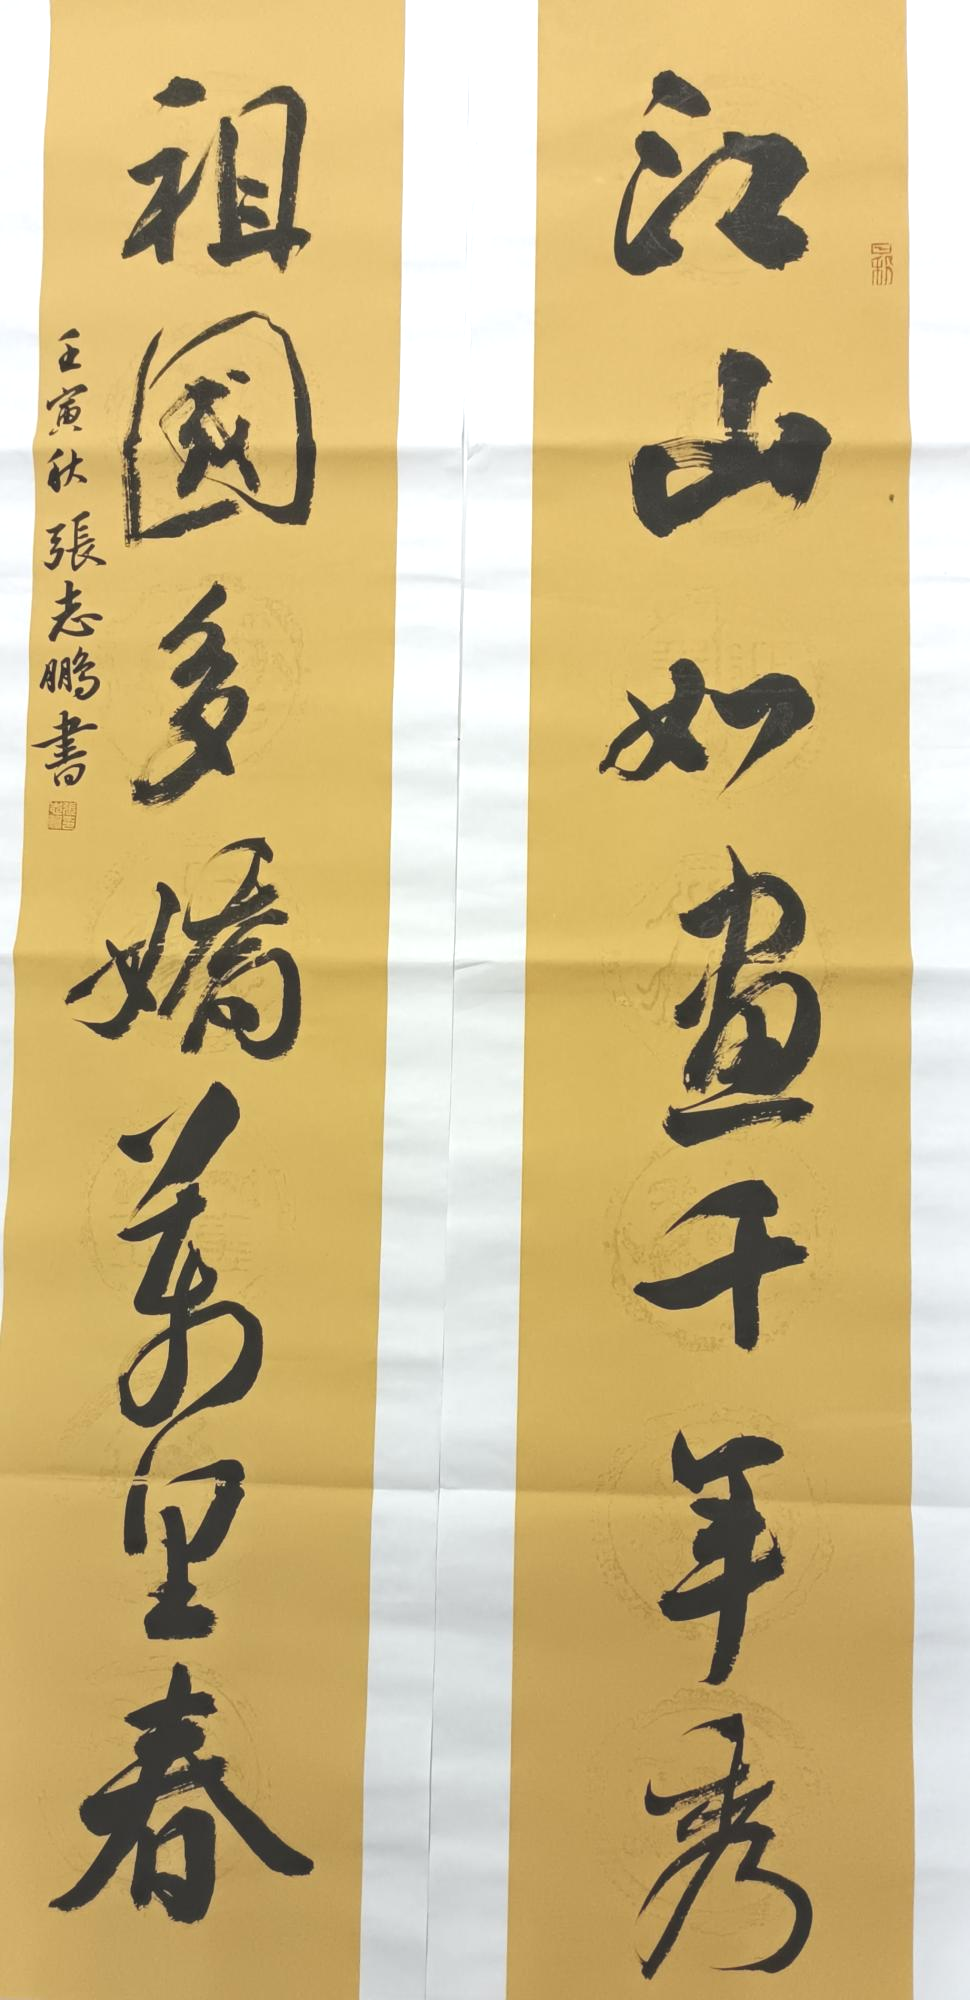 江山如画千年秀
祖國多嬌萬里春
壬寅秋張志鵬書